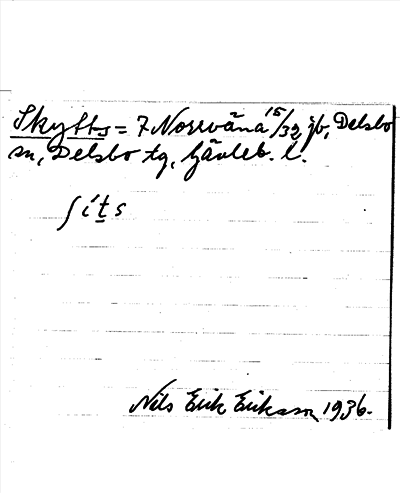 Skytts = 7 Norrväna 15/32 jb, Delsbo
sn, Delsbo tg, Gävleb. l.
ʃi´ts
Nils Erik Eriksson 1936.